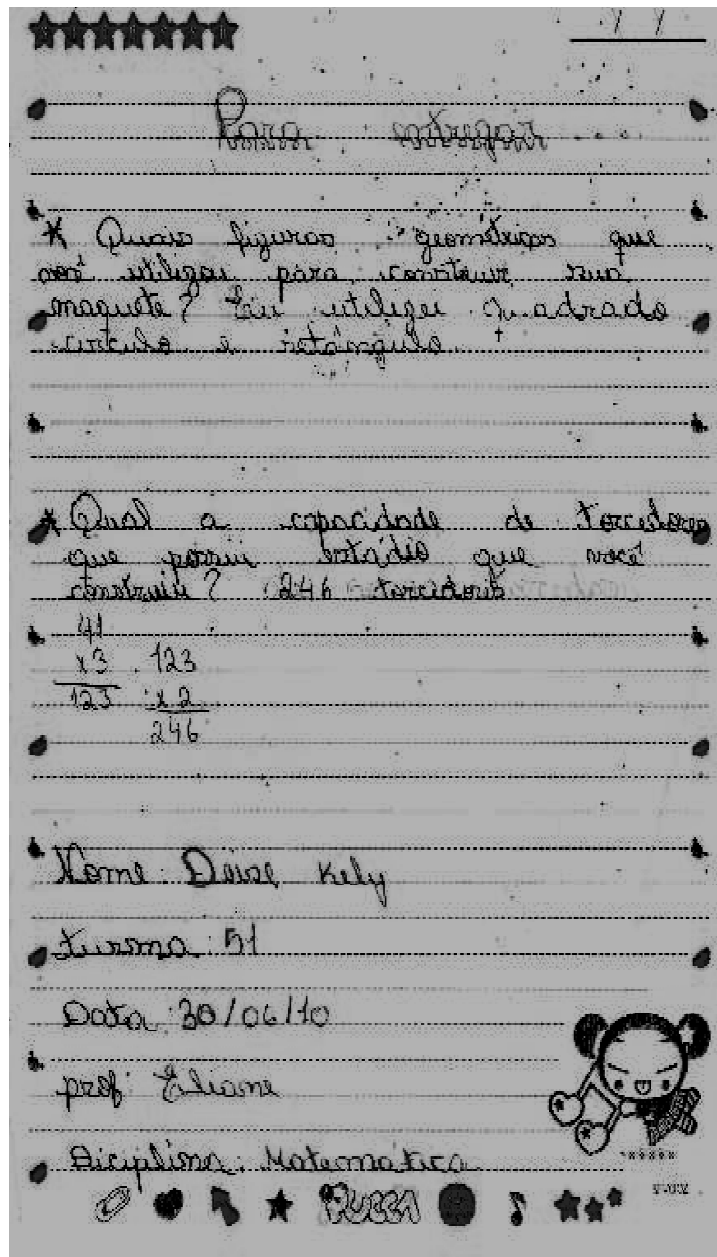 Para entregar
* Quais figuras geométricas que
você utilizou para construir sua
maquete? Eu utilizei quadrado
circulo e retângulo.
* Qual a capacidade de torcedores
que possui estádio que você
construiu? 246 torcedores
41
x3 123
123 x 2
246
Nome: Deise Kely
turma: 51
Data: 30/06/10
prof: Eliane
Diciplina: Matemática
PUCCA